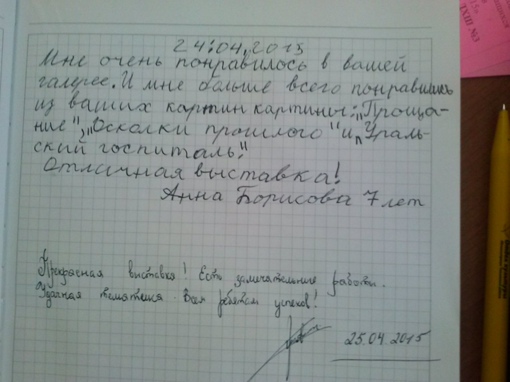 24.04.2015
Мне очень понравилось в вашей
галерее. И мне больше всего понравились
из ваших картин картины: „Проща-
ние", „Осколки прошлого" и „Ураль-
ский госпиталь."
Отличная выставка!
Анна Борисова 7 лет
Прекрасная выставка! Есть замечательные работы.
Удачная тематика. Всем ребятам успехов!
25.04.2015